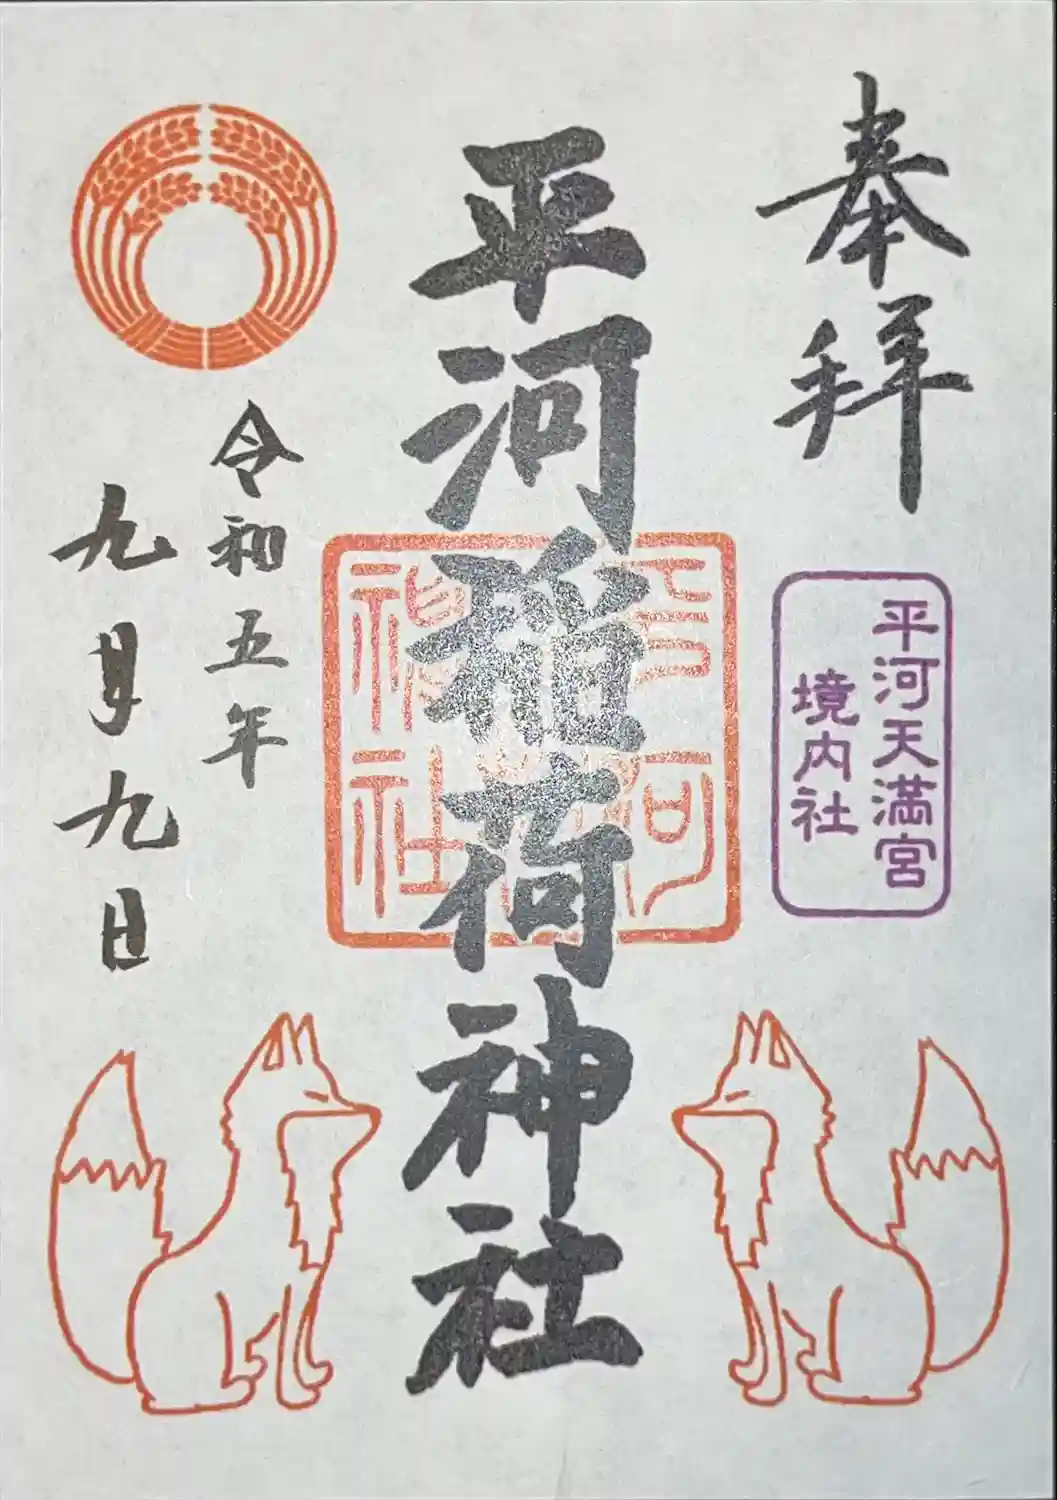 奉拝
平河天満宮
境内社
平河稲荷神社
平河稲荷神社
令和五年
九月九日